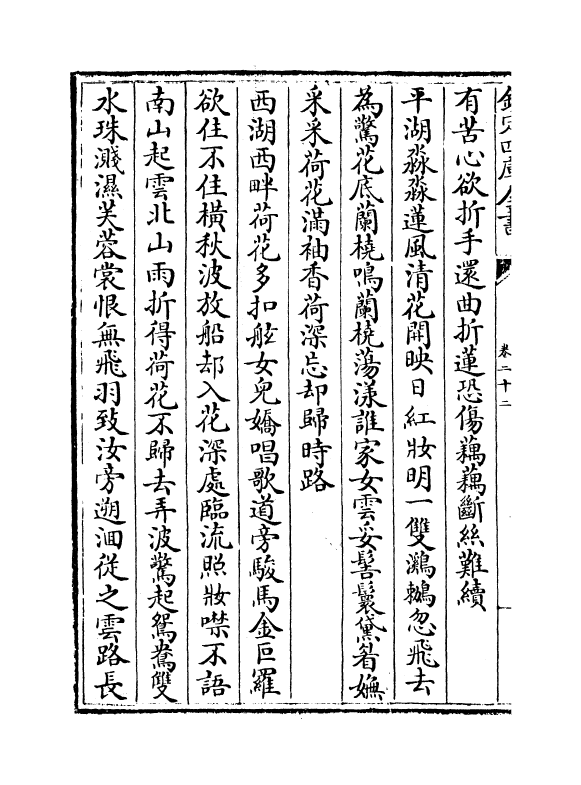 欽定四庫全書
卷二十二
有苦心欲折手還曲折蓮恐傷藕藕斷絲難續
平湖淼淼蓮風清花開映日紅妝明一雙鸂鶒忽飛去
為驚花底蘭橈鳴蘭橈蕩漾誰家女雲妥髻鬟黛眉嫵
采采荷花滿袖香荷深忘却歸時路
西湖西畔荷花多扣舷女兒嬌唱歌道旁駿馬金叵羅
欲住不住橫秋波放船却入花深處臨流照妝噤不語
南山起雲北山雨折得荷花不歸去弄波驚起鴛鴦雙
水珠濺濕芙蓉裳恨無飛羽致汝旁遡洄從之雲路長